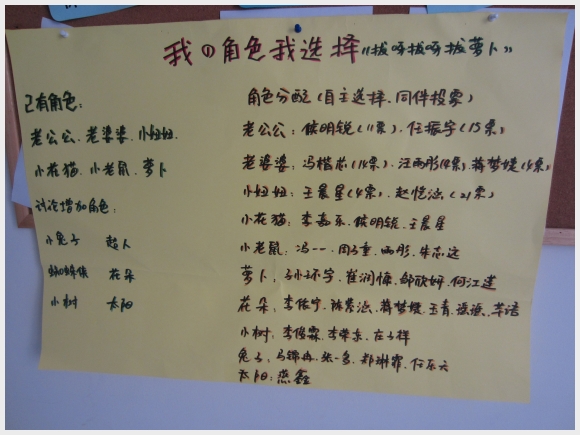 我的角色我选择《拔呀拔呀拔萝卜》
已有角色:
老公公、老婆婆、小妞妞、
小花猫、小老鼠、萝卜
讨论增加角色:
小兔子 超人
蝴蝶 花朵
小树 太阳
角色分配(自主选择、同伴投票)
老公公:侯明锐(11票)、任振宇(15票)
老婆婆:冯楷芯(14票)、汪雨彤(8票)、蒋梦婕(4票)
小妞妞:王晨星(4票)、赵悦涵(21票)
小花猫:李嘉乐、侯明锐、王晨星
小老鼠:冯一一、周子童、雨彤、朱志远
萝卜:孙环宇、崔润、邹欣妍、何江达
花朵:李依宁、陈紫涵、蒋梦婕、王青
小树:李俊霖、李荣东、庄子祥
兔子:马锦冉、张一多、郑琳霏、任乐天
太阳:燕鑫